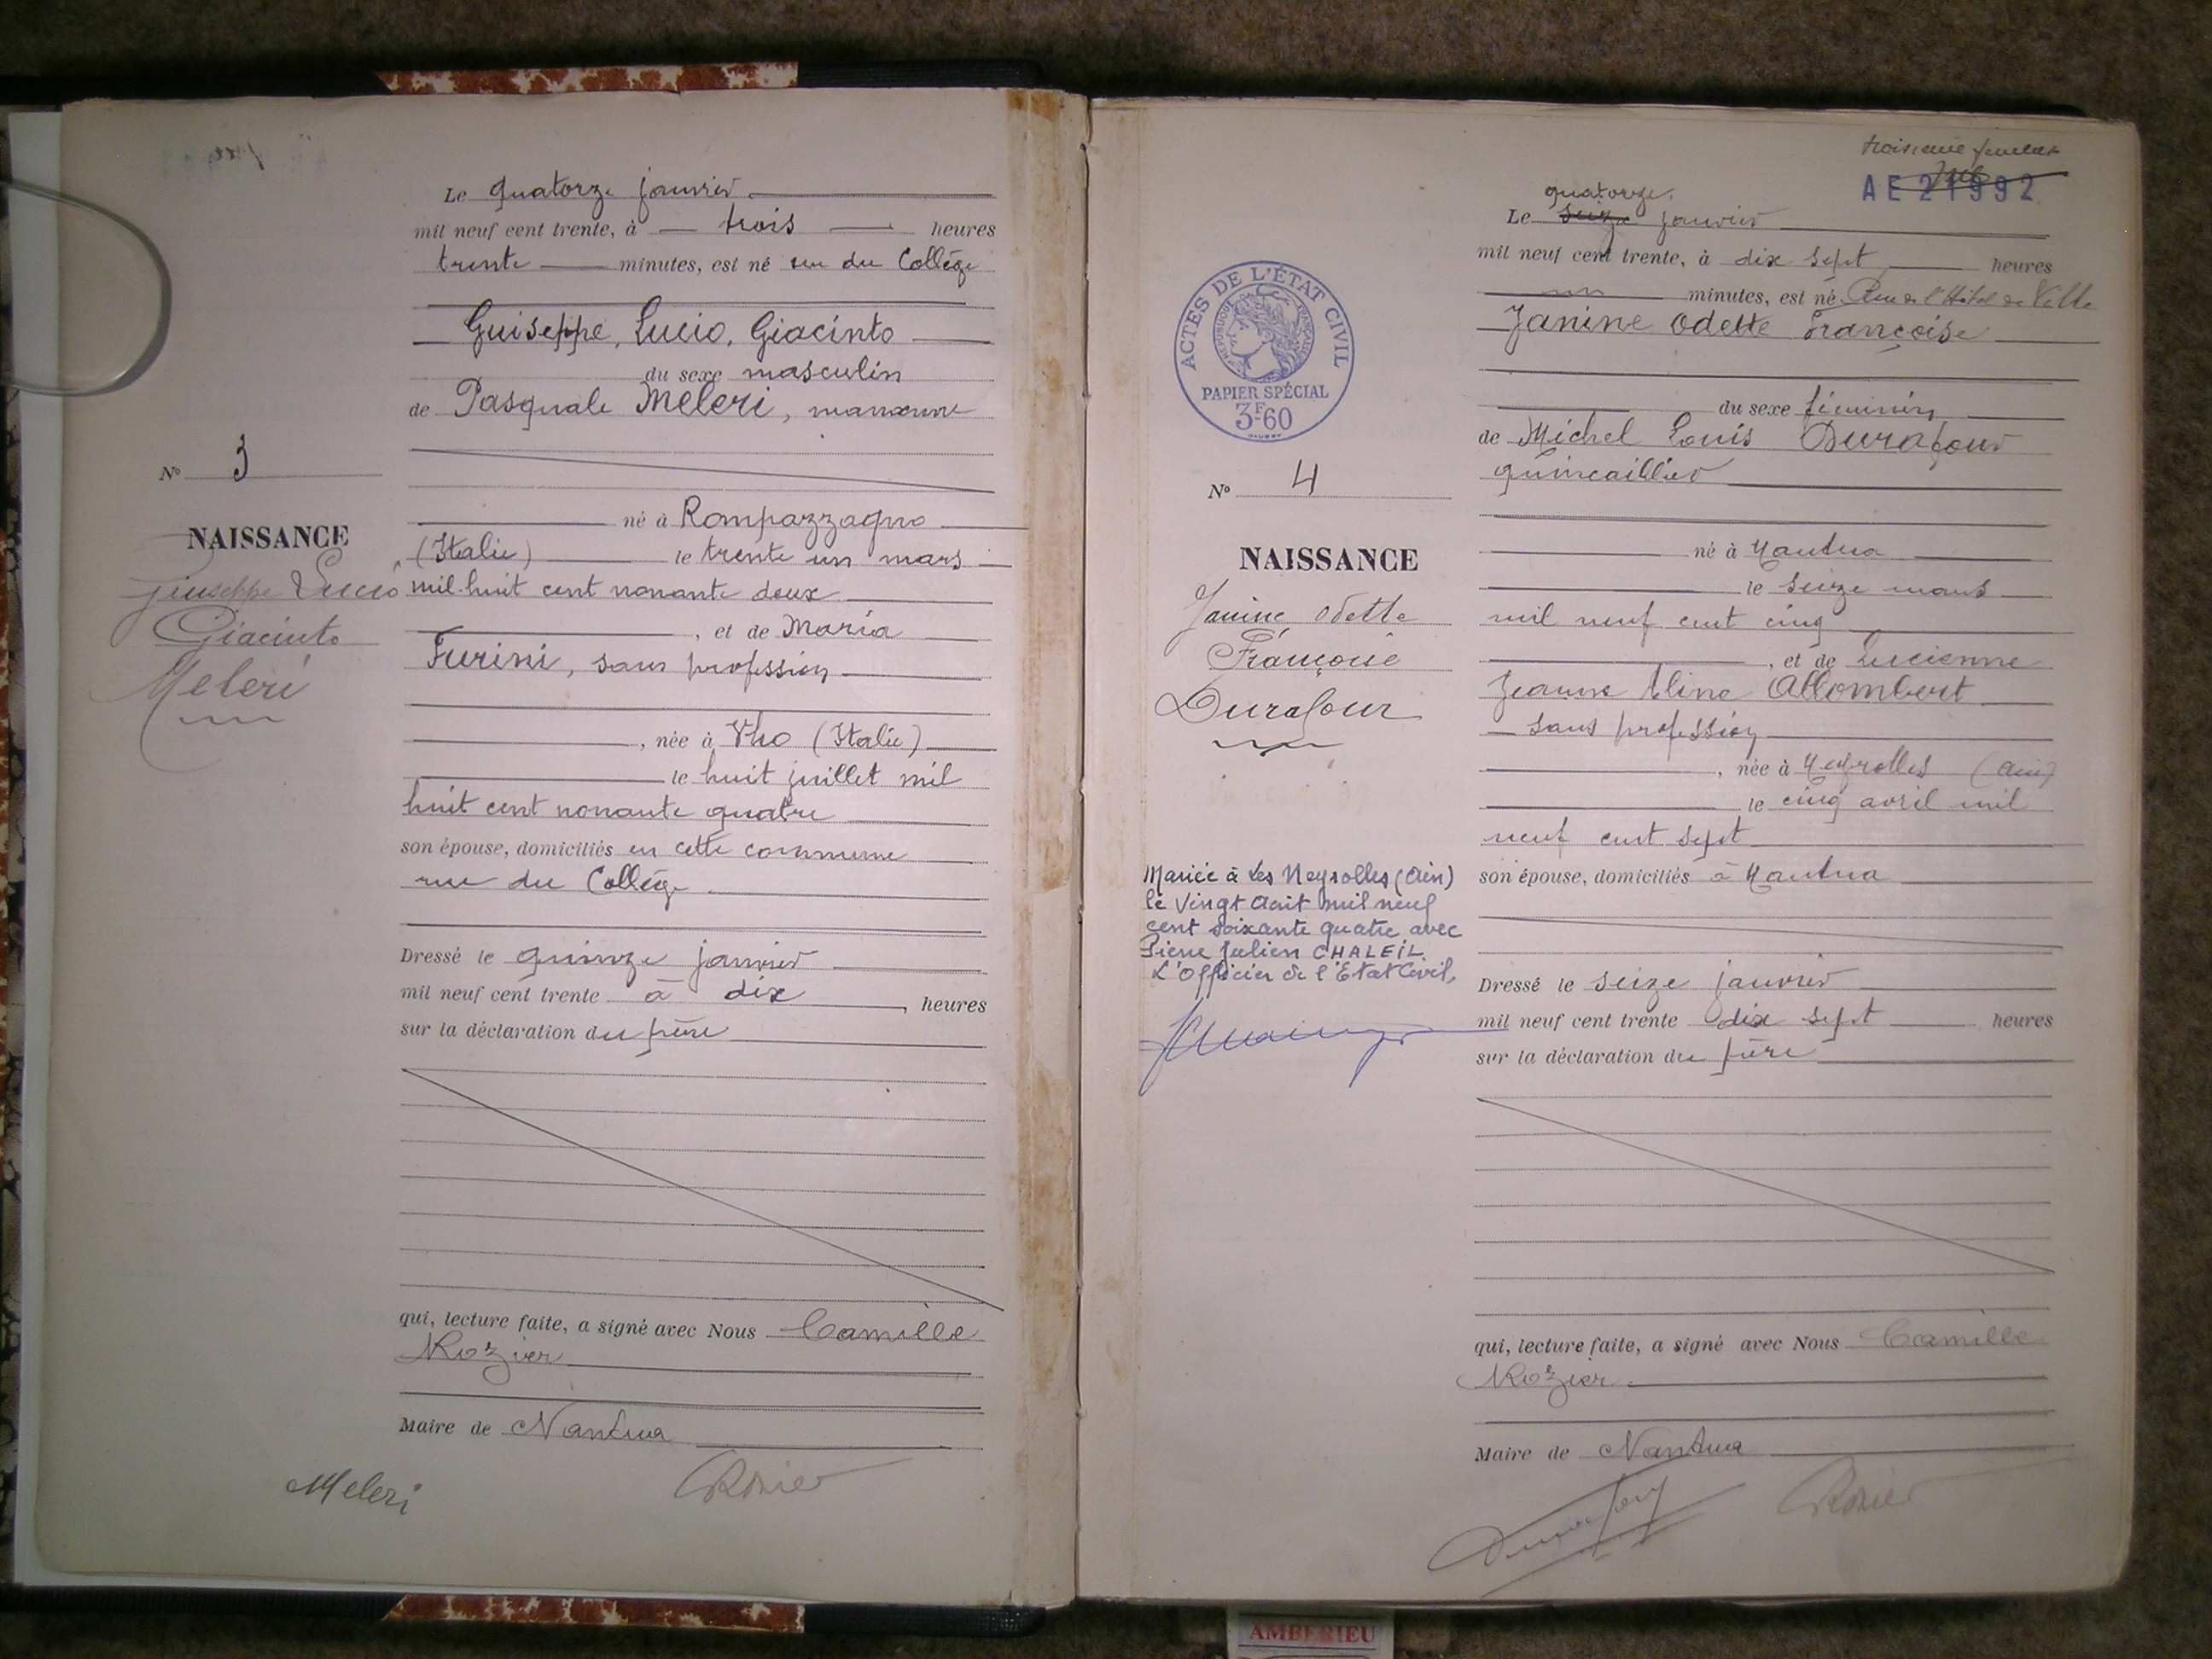 Le quatorze janvier
mil neuf cent trente, à trois heures
trente minutes, est né rue du Collège
Guiseppe, Lucio, Giacinto
du sexe masculin
de Pasquale Meleri, manœuvre
N° 3
NAISSANCE
Giuseppe Lucio
Giacinto
Meleri
né à Rompazzagno
(Italie) le trente un mars
mil huit cent nonante deux
, et de Maria
Furini, sans profession
, née à Vho (Italie)
le huit juillet mil
huit cent nonante quatre
son épouse, domiciliés en cette commune
rue du Collège
Dressé le quinze janvier
mil neuf cent trente à dix , heures
sur la déclaration du père
qui, lecture faite, a signé avec Nous Camille
Rozier
Maire de Nantua
Meleri Rozier
troisième feuillet
AE 21992
quatorze
Le seize janvier
mil neuf cent trente, à dix sept heures
minutes, est né Rue de l'Hôtel de Ville
Janine Odette Françoise
du sexe féminin
de Michel Louis Durafour
quincaillier
ACTES DE L'ÉTAT CIVIL
RÉPUBLIQUE FRANÇAISE
PAPIER SPÉCIAL
3F60
N° 4
NAISSANCE
Janine Odette
Françoise
Durafour
né à Nantua
le seize mars
mil neuf cent cinq
, et de Lucienne
Jeanne Aline Allombert
sans profession
, née à Neyrolles (Ain)
le cinq avril mil
neuf cent sept
son épouse, domiciliés à Nantua
Mariée à Les Neyrolles (Ain)
le Vingt Août mil neuf
cent soixante quatre avec
Pierre Julien CHALEIL
L'Officier de l'Etat Civil,
Dressé le seize janvier
mil neuf cent trente dix sept heures
sur la déclaration du père
qui, lecture faite, a signé avec Nous Camille
Rozier
Maire de Nantua
Durafour Rozier
AMBERIEU